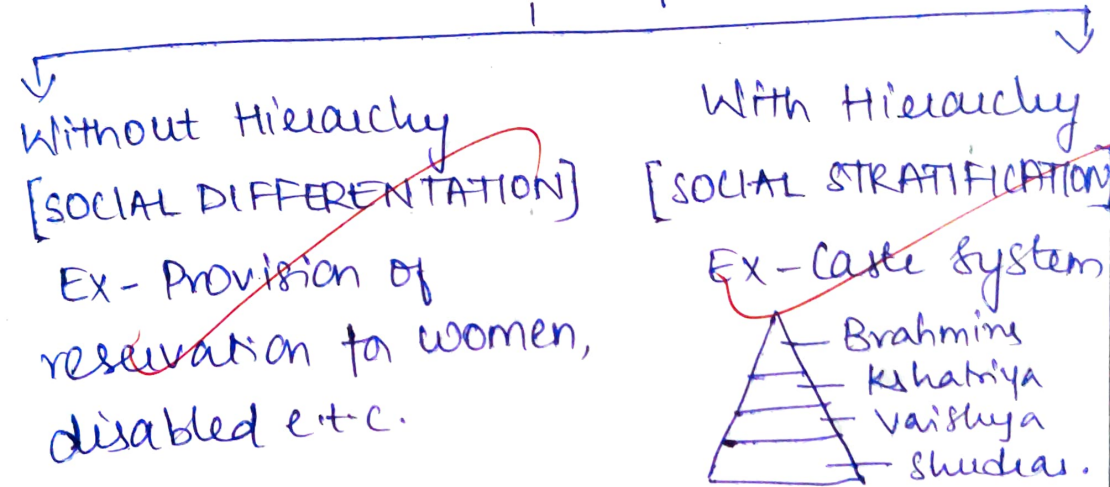 Without Hierarchy
[SOCIAL DIFFERENTATION]
Ex - Provision of
reservation to women,
disabled e.t.c.
With Hierarchy
[SOCIAL STRATIFICATION]
Ex - Caste System
Brahmins
Kshatriya
Vaishya
Shudras.